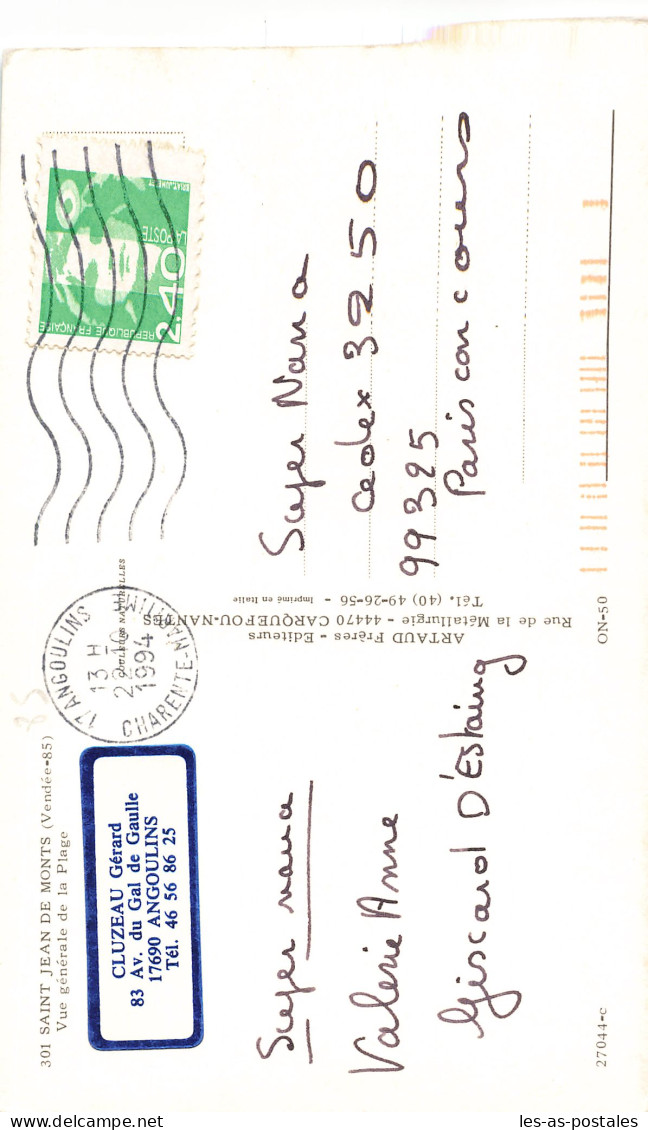 301 SAINT JEAN DE MONTS (Vendée-85)
Vue générale de la Plage
CLUZEAU Gérard
83 Av. du Gal de Gaulle
17690 ANGOULINS
Tél. 46 56 86 25
Super nana
Valérie Anne
Giscard D'Estaing
27044-c
17 ANGOULINS
13 H
22-10
1994
CHARENTE-MARITIME
COULEURS NATURELLES
ARTAUD Frères - Editeurs
Rue de la Métallurgie - 44470 CARQUEFOU-NANTES
Tél. (40) 49-26-56 - Imprimé en Italie
ON-50
REPUBLIQUE FRANÇAISE
2.40
LA POSTE
BRIAT.JUMELET
Super Nana
Cedex 3250
99325
Paris concours
les-as-postales